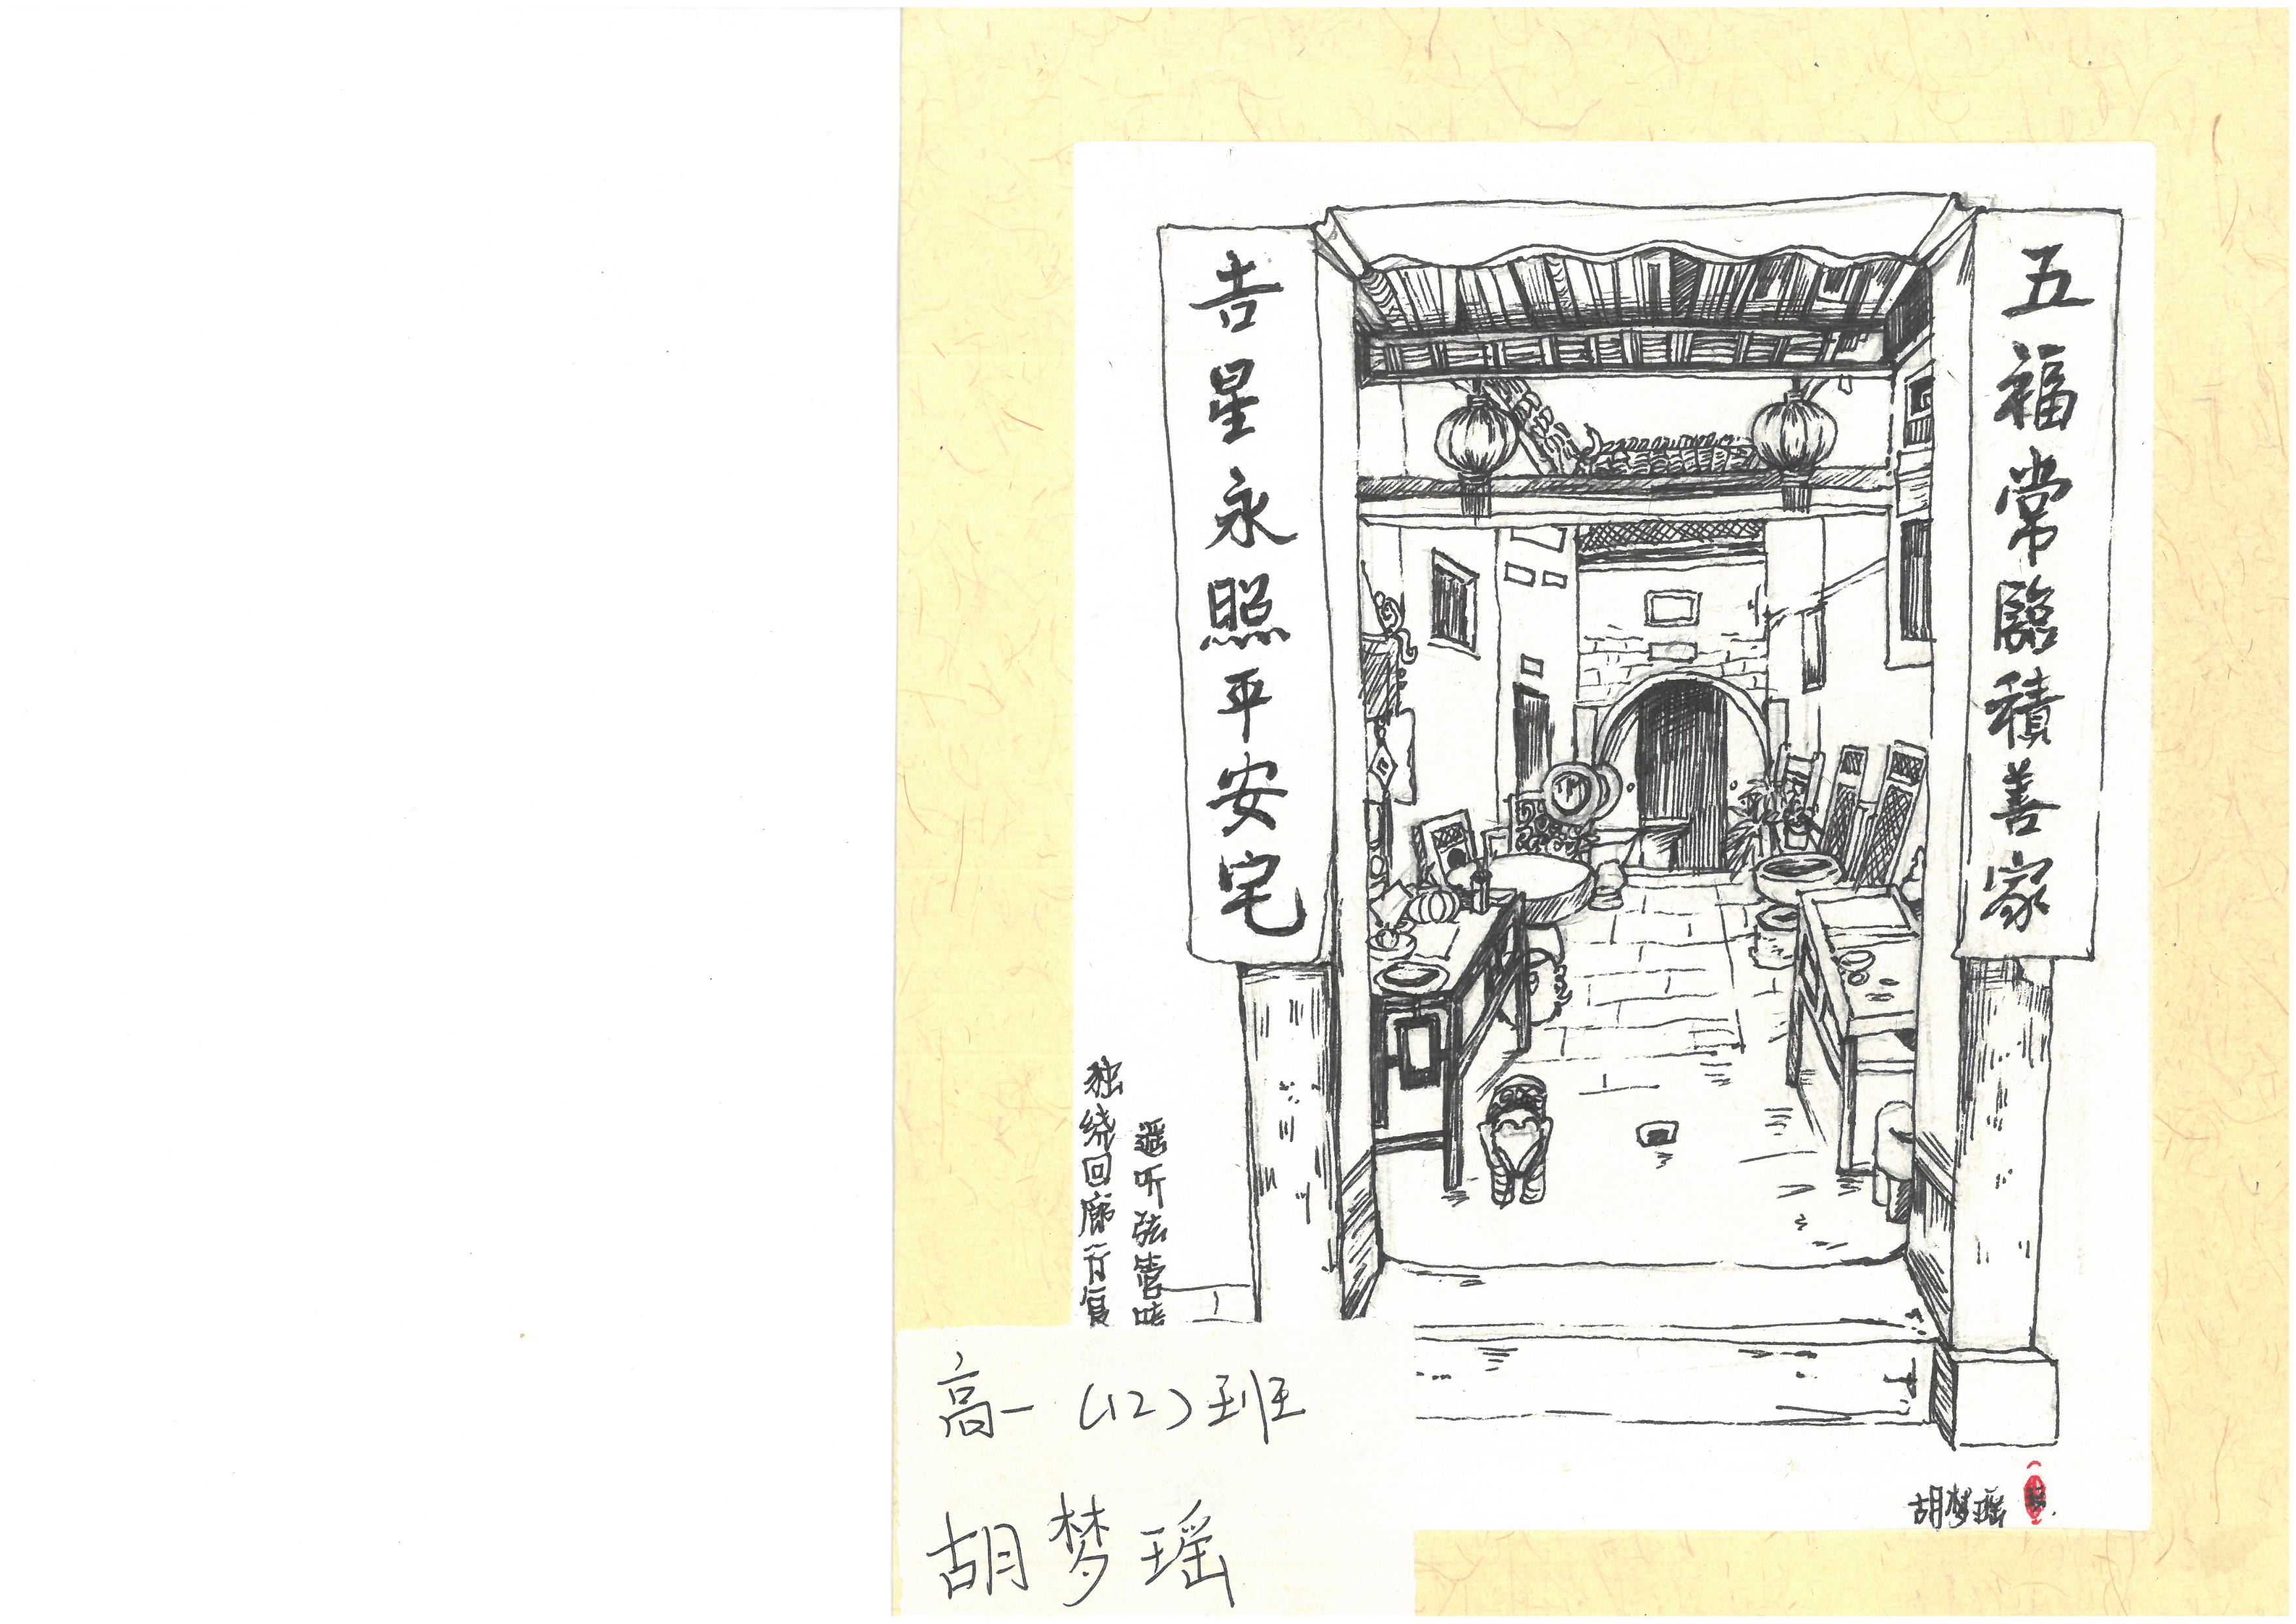 五福常臨積善家
吉星永照平安宅
独绕回廊行复
遥听弦管暗
高一（12）班
胡梦瑶
胡梦瑶